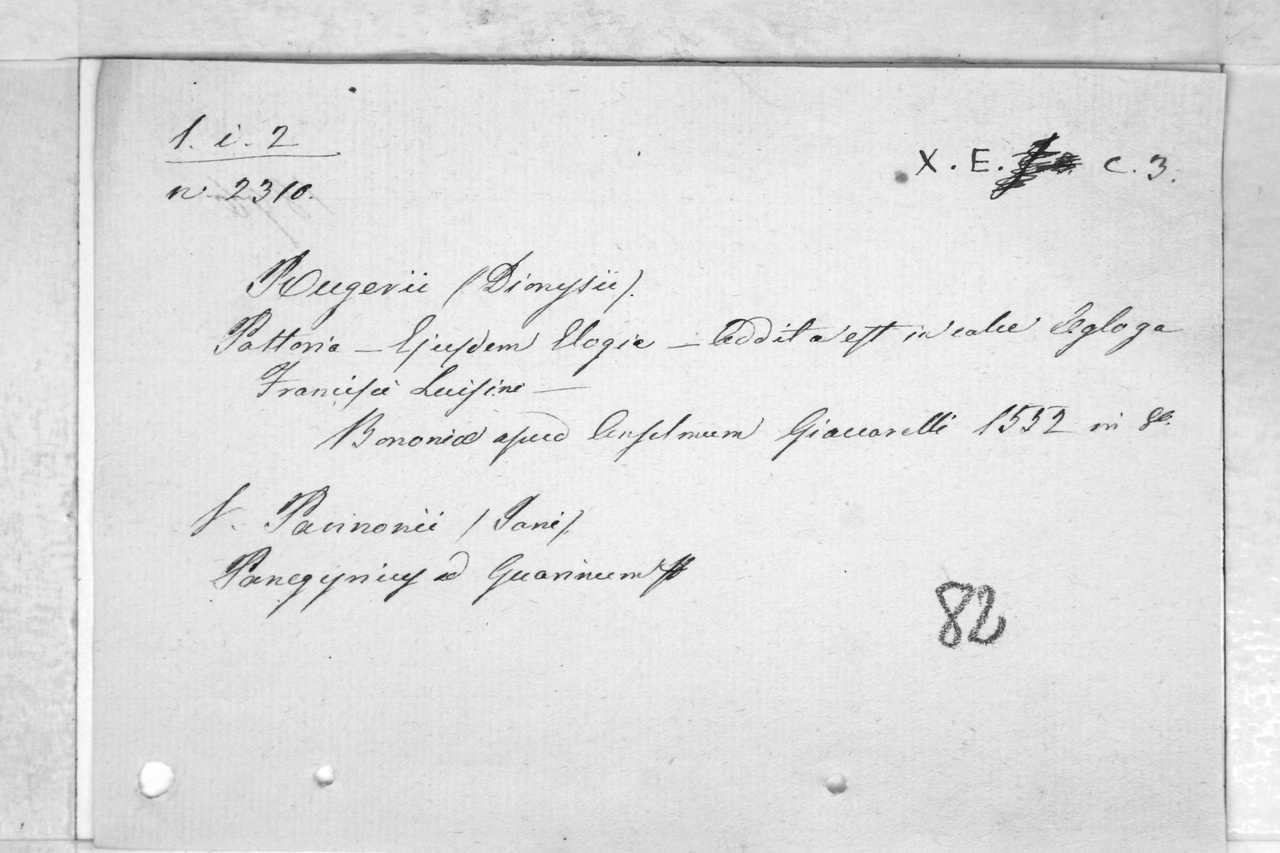 1. i. 2
n. 2310.
X. E. C. 3.
Rugerii (Dionysii).
Pattoria – Ejusdem Elogia – Addita est in calce Egloga
Francisci Luisini –
Bononiæ apud Anselmum Giaccarelli 1552 in 8º.
V. Pannonii (Jani).
Panegyricus ad Guarinum
82